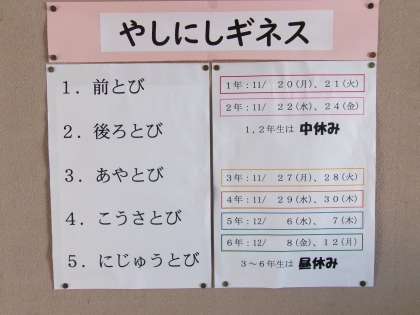 やしにしギネス
１．前とび
２．後ろとび
３．あやとび
４．こうさとび
５．にじゅうとび
１年：11/　２０(月)、２１(火)
２年：11/　２２(水)、２４(金)
１,２年生は 中休み
３年：11/　２７(月)、２８(火)
４年：11/　２９(水)、３０(木)
５年：12/　６(水)、７(木)
６年：12/　８(金)、１２(月)
３～６年生は 昼休み